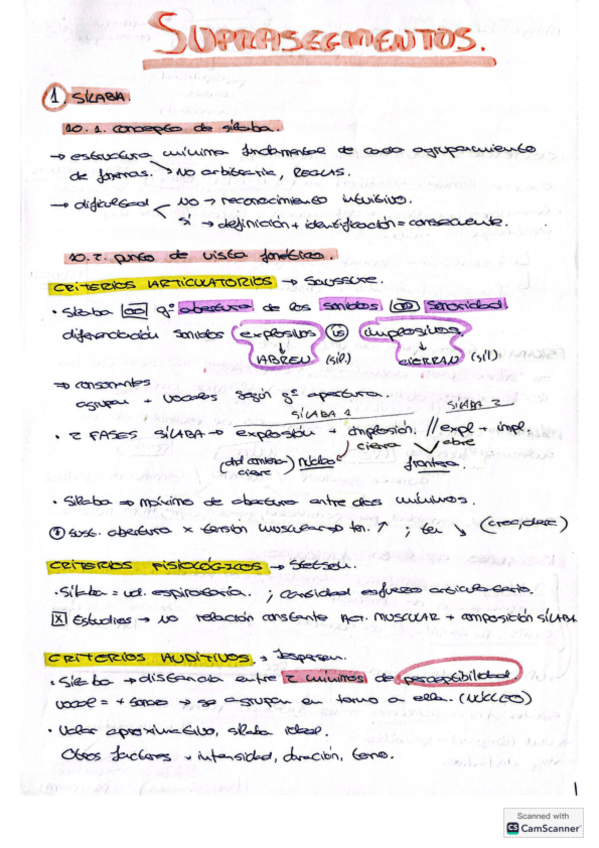 SUPRASEGMENTOS.
1. SÍLABA.
10.1. concepto de sílaba.
→ estructura mínima fundamental de cada agrupamiento
de fonemas. → No arbitraria, REGLAS.
→ dificultad < NO → reconocimiento intuitivo.
SÍ → definición + identificación = consecuente.
10.2. punto de vista fonético.
CRITERIOS ARTICULATORIOS → Saussure.
• Sílaba gº abertura de los sonidos sonoridad
diferenciación sonidos explosivos vs implosivos
↓ ABREN (síl.) ↓ CIERRAN (síl)
→ consonantes
agrupan + vocales según gº apertura.
SÍLABA 1 SÍLABA 2
• 2 FASES SÍLABA → explosión + implosión. // expl + impl.
cierra abre
cierre) núcleo frontera.
• Sílaba → máximo de abertura entre dos mínimos.
sust. abertura x tensión muscular → ten. ↑ ; ten ↘ (crec, decr)
CRITERIOS FISIOLÓGICOS → Stetson.
• Sílaba = respiratoria. ; cantidad esfuerzo articulatorio.
X Estudios → no relación constante Act. MUSCULAR + composición SÍLABA
CRITERIOS AUDITIVOS. → Jespersen.
• Sílaba → distancia entre 2 mínimos de perceptibilidad.
vocal = + sonora → se agrupan en torno a ella. (NÚCLEO)
• Valor aproximativo, sílaba ideal.
Otros factores → intensidad, duración, tono.
1
Scanned with
CS CamScanner